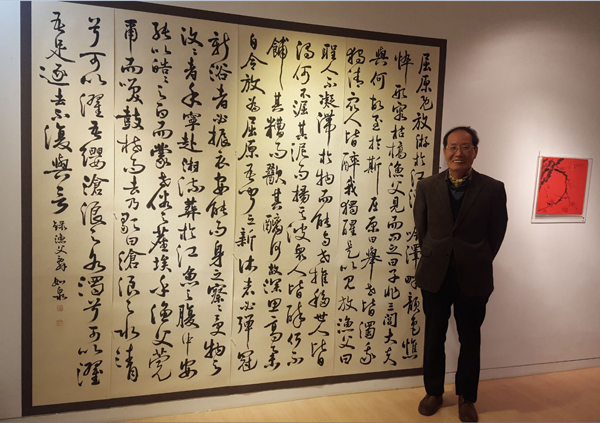 屈原既放游於江潭行吟澤畔顏色憔
悴形容枯槁漁父見而問之曰子非三閭大夫
與何故至於斯屈原曰舉世皆濁我
獨清眾人皆醉我獨醒是以見放漁父曰
聖人不凝滯於物而能與世推移世人皆
濁何不淈其泥而揚其波眾人皆醉何不
餔其糟而歠其醨何故深思高舉
自令放為屈原曰吾聞之新沐者必彈冠
新浴者必振衣安能以身之察察受物之
汶汶者乎寧赴湘流葬於江魚之腹中安
能以皓皓之白而蒙世俗之塵埃乎漁父莞
爾而笑鼓枻而去乃歌曰滄浪之水清
兮可以濯吾纓滄浪之水濁兮可以濯
吾足遂去不復與言 錄漁父辭 如泉